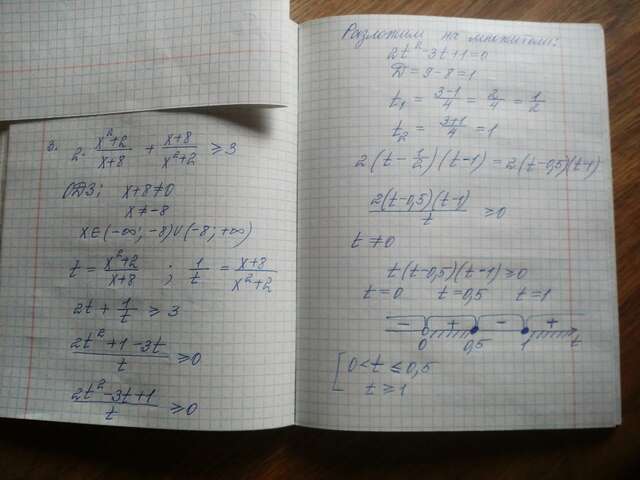 3. 2· (x²+2)/(x+8) + (x+8)/(x²+2) ≥ 3
ОДЗ: x+8≠0
x≠-8
x∈(-∞; -8)∪(-8; +∞)
t = (x²+2)/(x+8) ; 1/t = (x+8)/(x²+2)
2t + 1/t ≥ 3
(2t²+1-3t)/t ≥0
(2t²-3t+1)/t ≥0
Разложим на множители:
2t²-3t+1=0
Д=9-8=1
t₁ = (3-1)/4 = 2/4 = 1/2
t₂ = (3+1)/4 = 1
2(t-1/2)(t-1)=2(t-0,5)(t-1)
(2(t-0,5)(t-1))/t ≥0
t≠0
t(t-0,5)(t-1)≥0
t=0 t=0,5 t=1
- + - +
0 0,5 1 t
[0<t≤0,5
t≥1